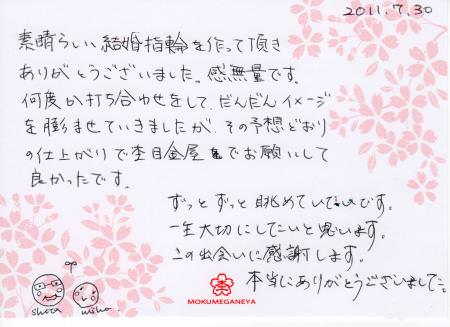 2011.7.30
素晴らしい結婚指輪を作って頂き
ありがとうございました。感無量です。
何度か打ち合わせをして、だんだんイメージ
を膨ませていきましたが、その予想どおり
の仕上がりで杢目金屋さんでお願いして
良かったです。
ずっとずっと眺めていたいです。
一生大切にしていこうと思います。
この出会いに感謝します。
本当にありがとうございました。
shota miho
MOKUMEGANEYA